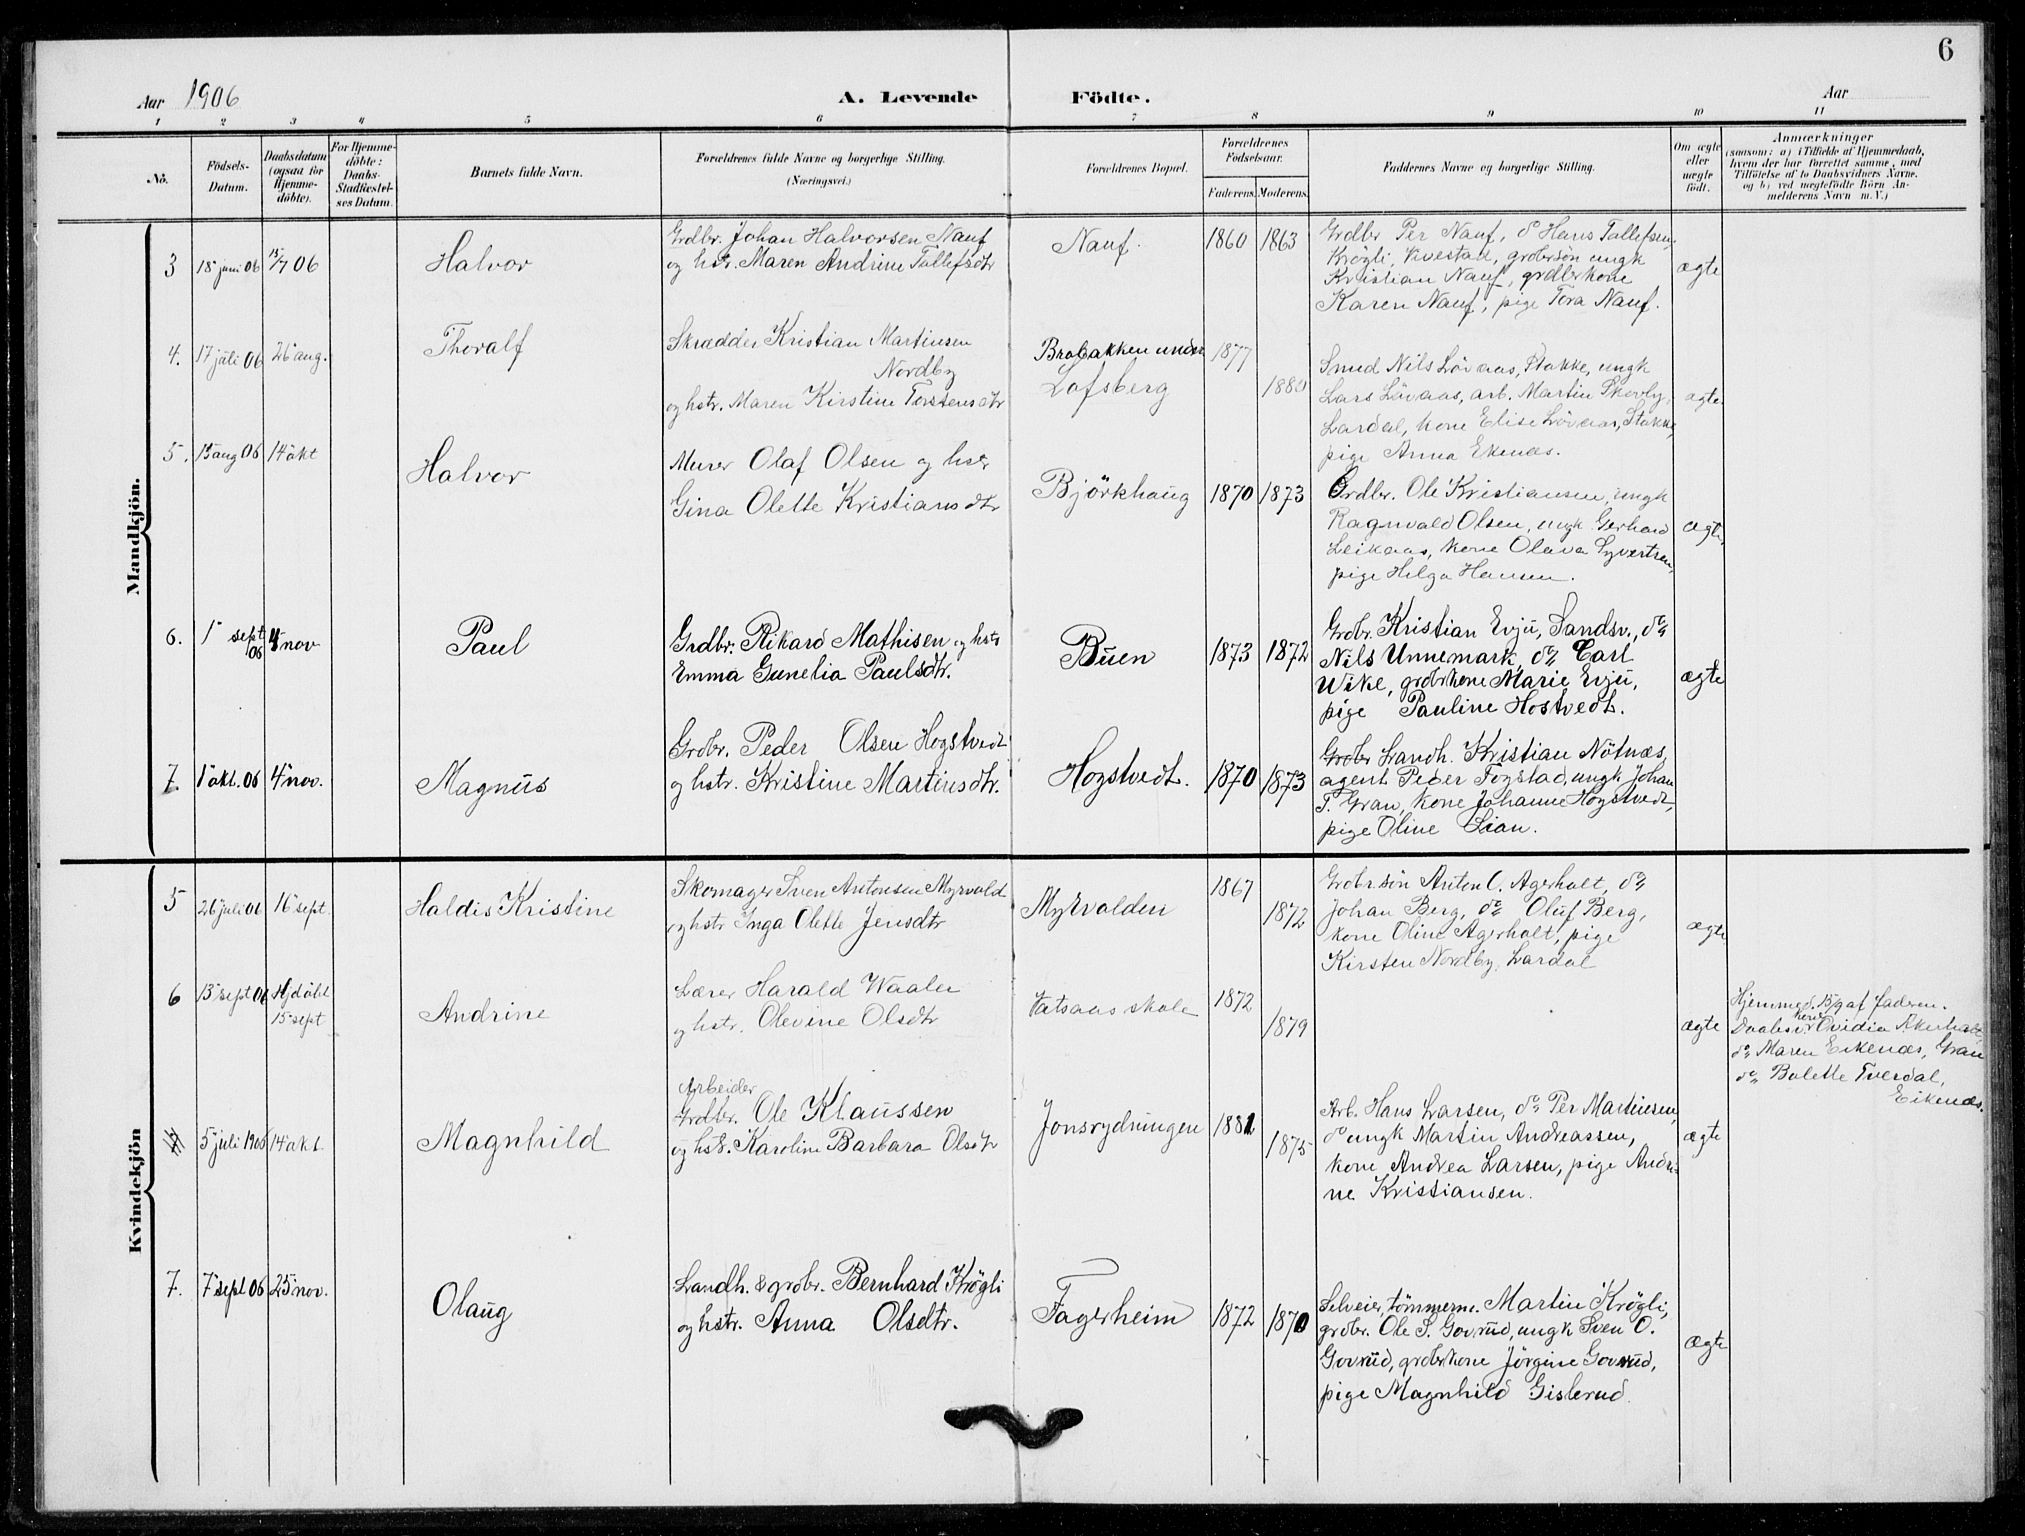 6
Aar 1906
A. Levende Födte.
Aar
1 2 3 4 5 6 7 8 9 10 11
No.
Födsels-
Datum.
Daabsdatum
(ogsaa for
Hjemme-
döbte).
For Hjemme-
döbte:
Daabs-
Stadfæstel-
ses Datum.
Barnets fulde Navn.
Forældrenes fulde Navne og borgerlige Stilling.
(Næringsvei.)
Forældrenes Bopæl.
Forældrenes
Födselsaar.
Faderens. Moderens.
Faddernes Navne og borgerlige Stilling.
Om ægte
eller
uægte
födt.
Anmærkninger
(saasom: a) i Tilfælde af Hjemmedaab,
hvem der har forrettet samme, med
Tilföielse af to Daabsvidners Navne.
og b) ved uægtefödte Börn An-
melderens Navn m.V.)
Mandkjön.
3
18 juni 06
15/7 06
Halvor
Grdbr. Johan Halvorsen Nauf
og hstr. Maren Andrine Tollefsdtr
Nauf.
1860 1863
Grdbr Per Nauf, do Hans Tollefsen
Krögli, Kvestad, grdbrsön ungk
Kristian Nauf, grdbrkone
Karen Nauf, pige Tora Nauf.
ægte
4.
17 juli 06
26 aug.
Thoralf
Skrædder Kristian Martinsen
Nordby
og hstr. Maren Kirstine Torstensdtr
Brobakken under
Lofsberg
1877
1880
Smed Nils Lövaas, Stokke, ungk
Lars Lövaas, arb. Martin Skovly,
Lardal, kone Elise Lövaas, Stokke,
pige Anna Ekenæs.
ægte
5.
15 aug 06
14 okt
Halvor
Murer Olaf Olsen og hstr
Gina Olette Kristiansdtr
Björkhaug
1870 1873
Grdbr. Ole Kristiansen, ungk
Ragnvald Olsen, ungk Gerhard
Leikaas, kone Olava Syvertsen,
pige Helga Hansen.
ægte
6.
1 sept
06
4 nov
Paul
Grdbr. Rikard Mathisen og hstr
Emma Gunelia Paulsdtr.
Buen
1873 1872
Grdbr. Kristian Evju, Sandsv., do
Nils Unnemark, do Carl
Wike, grdbrkone Marie Evju,
pige Pauline Hostvedt.
ægte
7.
1 okt. 06
4 nov.
Magnus
Grdbr. Peder Olsen Hogstvedt
og hstr. Kristine Martinsdtr.
Hogstvedt.
1870 1873
Grdbr Landh. Kristian Nötnæs,
agent Peder Fogstad, ungk Johan
T. Gran, kone Johanne Hogstvedt,
pige Oline Lian.
Kvindekjön
5
26 juli 06
16 sept.
Haldis Kristine
Skomager Sven Antonsen Myrvold
og hstr Inga Olette Jensdtr
Myrvolden
1867
1872
Grdbrsön Anton C. Agerholt, do
Johan Berg, do Oluf Berg,
kone Oline Agerholt, pige
Kirsten Nordby, Lardal
ægte
6
13 sept 06
Hjdöbt
15 sept
Andrine
Lærer Harald Waaler
og hstr. Olevine Olsdtr
Vatsaas skole
1872
1879
ægte
Hjemmed. 15/9 af faderen.
Daabsv. kone Ovidia Akerholt,
do Maren Eikenæs, Gran
do Bolette Tverdal,
Eikenæs.
5 juli 1906
14 okt.
Magnhild
Arbeider
Grdbr. Ole Klaussen
og hstr. Karoline Barbara Olsdtr
Jonsrydningen
1881
1875
Arb. Hans Larsen, do Per Martinsen,
do ungk Martin Andreassen,
kone Andrea Larsen, pige Andri-
ne Kristiansen.
ægte
7.
7 sept 06
25 nov.
Olaug
Landh. & grdbr. Bernhard Krögli
og hstr. Anna Olsdtr.
Fagerheim
1872 1870
Selveier, tömmerm. Martin Krögli,
grdbr. Ole S. Govrud, ungk Sven O.
Govrud, grdbrkone Jörgine Govrud,
pige Magnhild Gislerud.
ægte